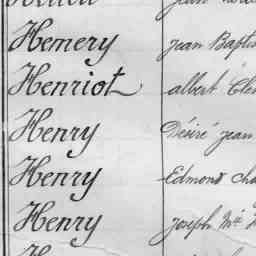 Hemery Jean Bapti
Henriot Albert Cle
Henry Désiré Jean
Henry Edmond Cha
Henry Joseph Mie